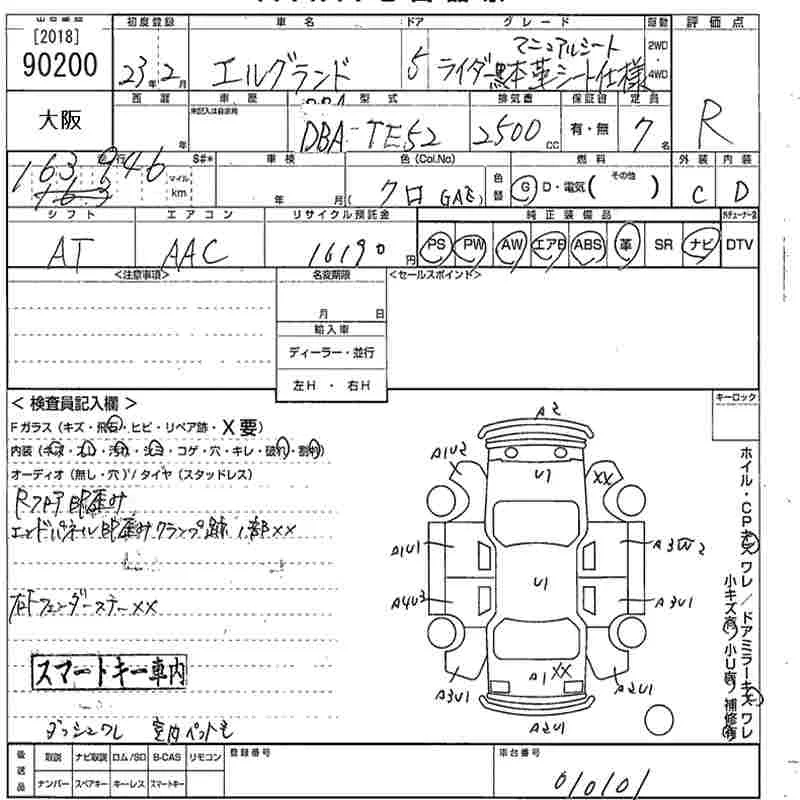 [2018]
90200
大阪
初度登録
23年2月
車名
エルグランド
ドア
5
グレード
マニュアルシート
ライダー黒本革シート仕様
駆動
2WD
4WD
評価点
R
西暦
年
車歴
未記入は自家用
型式
DBA-TE52
排気量
2500cc
保証書
有・無
定員
7名
163,946
走行
マイル
km
S#*
車検
年 月
色(Col.No)
クロ GAE)
色替
燃料
G D・電気( その他 )
外装
C
内装
D
シフト
AT
エアコン
AAC
リサイクル預託金
16190円
純正装備品
PS PW AW エアB ABS 革 SR ナビ DTV
<注意事項>
名変期限
月 日
輸入車
ディーラー・並行
左H・右H
<セールスポイント>
キーロック
<検査員記入欄>
Fガラス(キズ・飛石・ヒビ・リペア跡・X要)
内装(キズ・スレ・汚れ・シミ・コゲ・穴・キレ・破れ・割れ)
オーディオ(無し・穴)/タイヤ(スタッドレス)
Rフロア凹歪み
エンドパネル凹歪みクランプ跡 1部××
右Fフェンダーステー××
スマートキー車内
ダッシュワレ 室内ペット毛
A2
A1U2
XX
U1
A1U1
A3W2
U1
A4U3
A3U1
A3U1
A1 XX
A2U1
A2U1
ホイル・CPキズ ワレ/ドアミラーキズ ワレ
小キズ有 小U有 補修有
後送品
取説 ナビ取説 ロム/SD B-CAS リモコン
ナンバー スペアキー キーレス スマートキー
登録番号
車台番号
010101